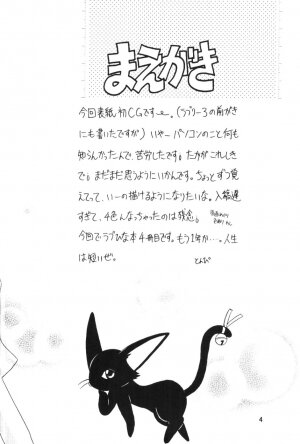 まえがき
今回表紙初CGです〜。(ラブリー3の前がき
にも書いたですが)いやーパソコンのこと何も
知らんかったんで、苦労したです。たかがこれしき
で。まだまだ思うようにいかんです。ちょっとずつ覚
えてって、いーの描けるようになりたいな。入稿遅
すぎて、4色んなっちゃったのは残念。
今回でラブひな本4冊目です。もう1年か…。人生
は短いぜ。
とんび
4